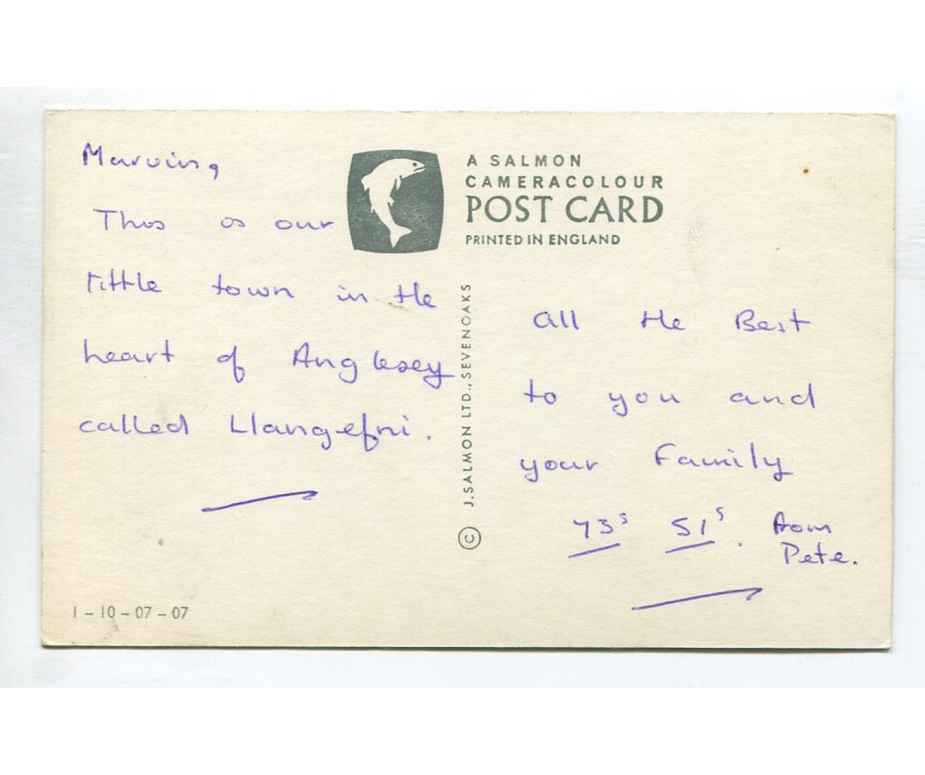 Marving,
This is our
little town in the
heart of Anglesey
called Llangefni.
1-10-07-07
A SALMON
CAMERACOLOUR
POST CARD
PRINTED IN ENGLAND
© J. SALMON LTD., SEVENOAKS
All the Best
to you and
your Family
73s 51s. from
Pete.